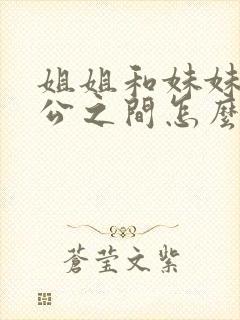 姐姐和妹妹
公之間怎麼
蒼莹文紫